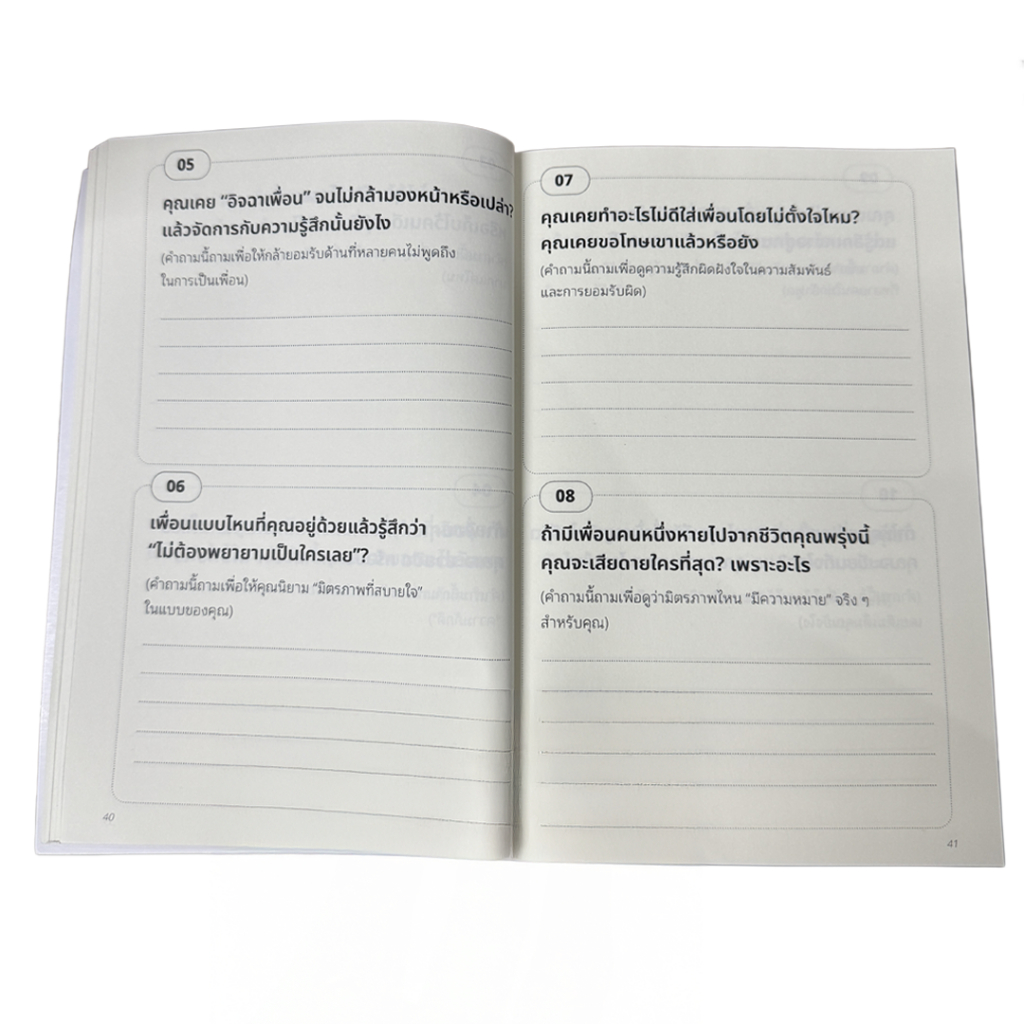 05
คุณเคย “อิจฉาเพื่อน” จนไม่กล้ามองหน้าหรือเปล่า?
แล้วจัดการกับความรู้สึกนั้นยังไง
(คำถามนี้ถามเพื่อให้กล้ายอมรับด้านที่หลายคนไม่พูดถึง
ในการเป็นเพื่อน)
06
เพื่อนแบบไหนที่คุณอยู่ด้วยแล้วรู้สึกว่า
“ไม่ต้องพยายามเป็นใครเลย”?
(คำถามนี้ถามเพื่อให้คุณนิยาม “มิตรภาพที่สบายใจ”
ในแบบของคุณ)
40
07
คุณเคยทำอะไรไม่ดีใส่เพื่อนโดยไม่ตั้งใจไหม?
คุณเคยขอโทษเขาแล้วหรือยัง
(คำถามนี้ถามเพื่อดูความรู้สึกผิดฝังใจในความสัมพันธ์
และการยอมรับผิด)
08
ถ้ามีเพื่อนคนหนึ่งหายไปจากชีวิตคุณพรุ่งนี้
คุณจะเสียดายใครที่สุด? เพราะอะไร
(คำถามนี้ถามเพื่อดูว่ามิตรภาพไหน “มีความหมาย” จริง ๆ
สำหรับคุณ)
41